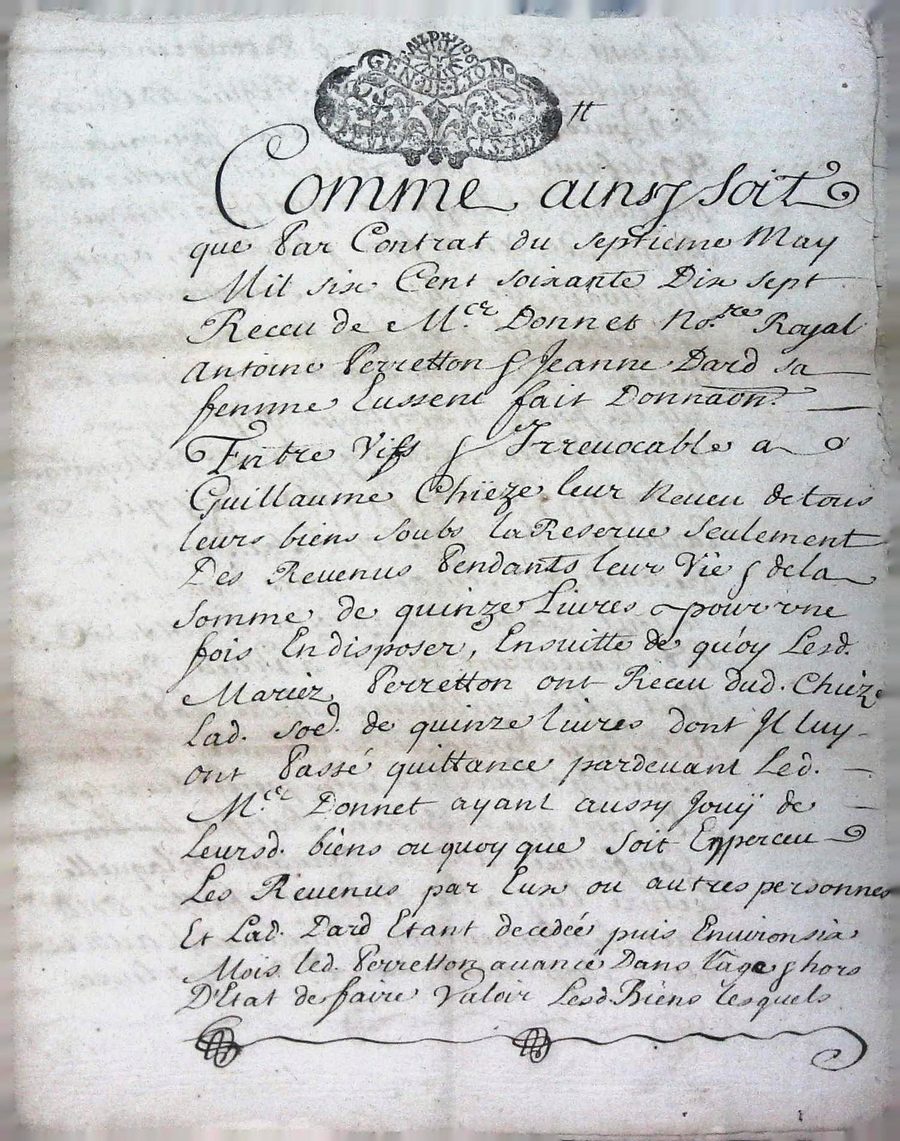 GEN·DE·LION
Comme ainsy soit
que Par Contrat du septieme May
Mil six Cent soixante Dix sept
Receu de Mer. Donnet Nore. Royal
Antoine Perretton & Jeanne Dard sa
femme Eussent fait Donnaon.
Entre Vifs & Irreuocable a
Guillaume Chïeze leur Neueu de tous
leurs biens soubs la Reserue seulement
Des Reuenus Pendants leur Vie & de la
somme de quinze Livres pour vne
fois En disposer, Ensuitte de quoy Lesd.
Mariéz Perretton ont Receu dud. Chieze
Lad. soe. de quinze livres dont Jl luy
ont Passé quittance pardeuant Led.
Mer. Donnet ayant aussy Jouÿ de
Leursd. biens ou quoy que soit Enperceu
Les Reuenus par Eux ou autres personnes
Et Lad. Dard Etant decedée puis Enuiron six
Mois led. Perretton auancé Dans l'age & hors
D'Etat de faire Valoir Lesd. Biens lesquels